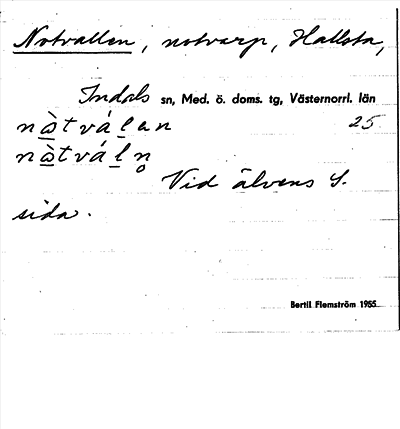 Notvallen, notvarp, Hallsta,
Indals sn, Med. ö. doms. tg, Västernorrl. län
nò̱tváḻan 25.
nò̱tváḻn̥
Vid älvens S.
sida.
Bertil Flemström 1955